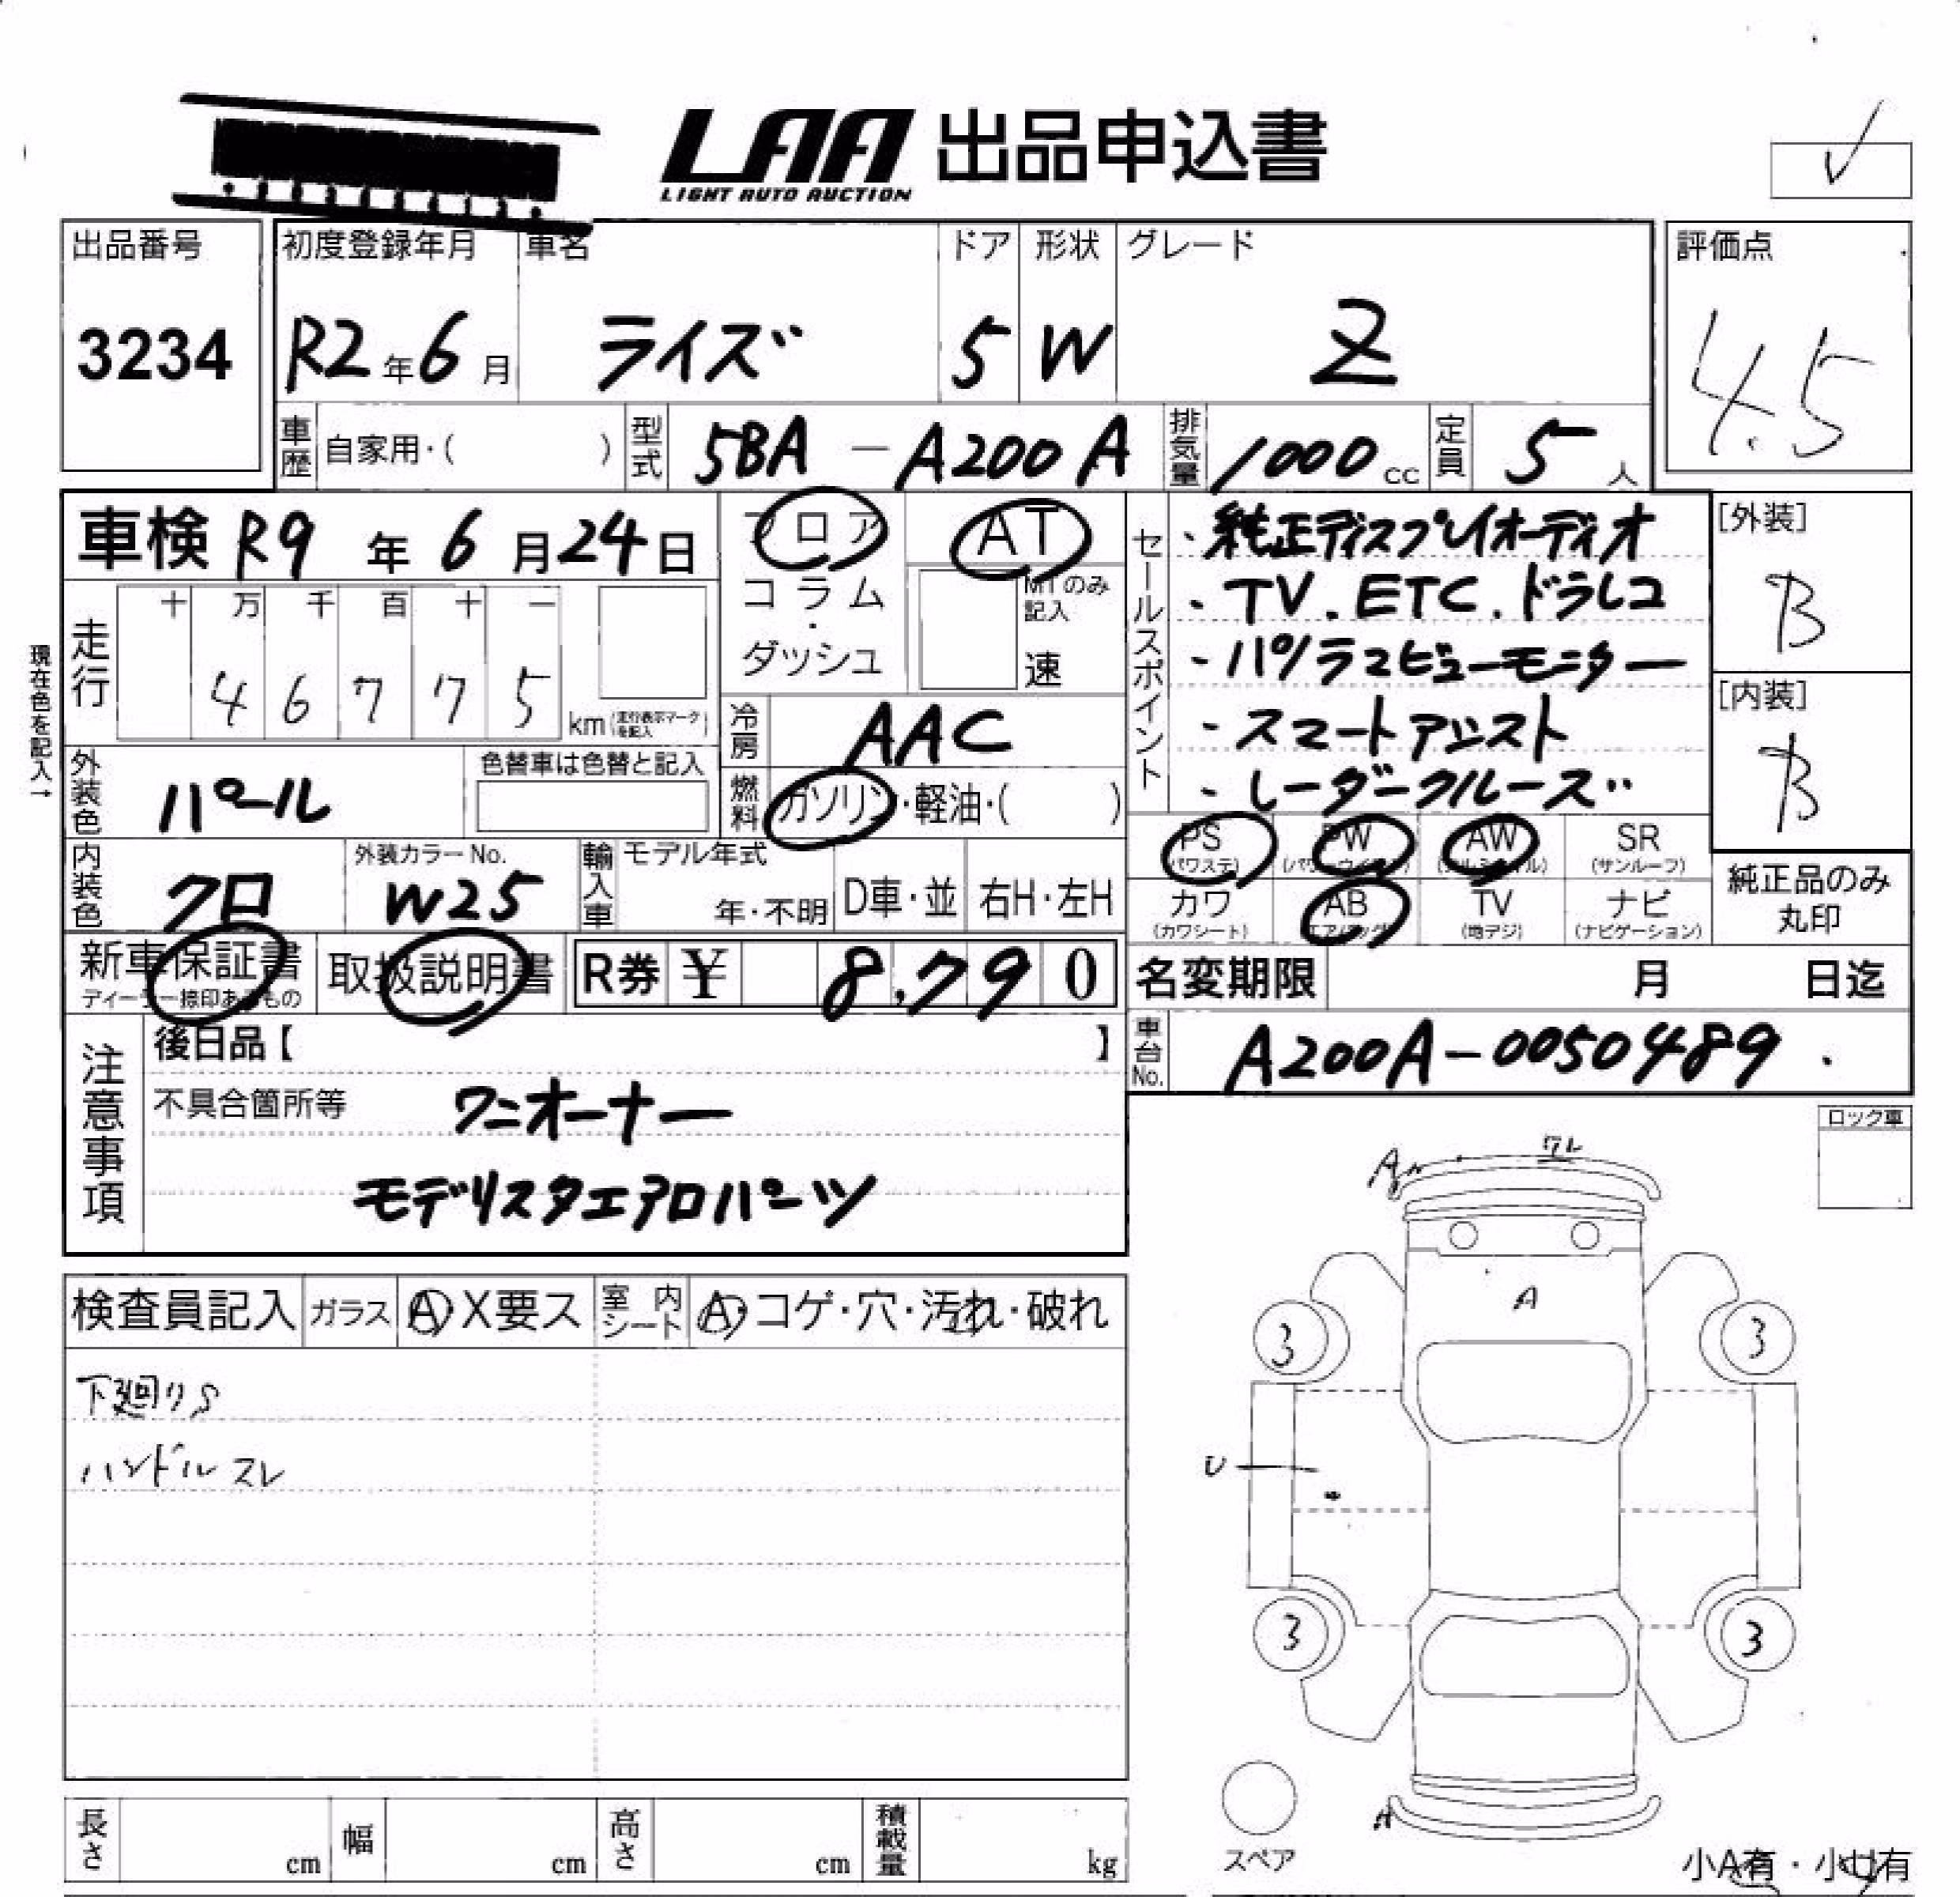 LAA 出品申込書
LIGHT AUTO AUCTION
出品番号
3234
初度登録年月
R2年6月
車名
ライズ
ドア
5
形状
W
グレード
Z
評価点
4.5
車歴 自家用・( )
型式 5BA-A200A
排気量 1000cc
定員 5人
車検 R9年6月24日
フロア
コラム
・
ダッシュ
AT
MTのみ
記入
速
現在色を記入→
走行
十 万 千 百 十 一
4 6 7 7 5
km(走行表示マークを記入)
冷房 AAC
燃料 ガソリン・軽油・( )
外装色 パール
色替車は色替と記入
内装色 クロ
外装カラーNo.
W25
輸入車
モデル年式
年・不明
D車・並
右H・左H
新車保証書
取扱説明書
R券 ¥ 8,790
セールスポイント
・純正ディスプレイオーディオ
・TV.ETC.ドラレコ
・パノラマビューモニター
・スマートアシスト
・レーダークルーズ
[外装]
B
[内装]
B
PS
(パワステ)
PW
(パワーウインドウ)
AW
(アルミホイル)
SR
(サンルーフ)
カワ
(カワシート)
AB
(エアバッグ)
TV
(地デジ)
ナビ
(ナビゲーション)
純正品のみ
丸印
名変期限 月 日迄
車台No. A200A-0050489
注意事項
後日品【 】
不具合箇所等 ワンオーナー
モデリスタエアロパーツ
ロック車
検査員記入
ガラス A・X要ス
室内シート A・コゲ・穴・汚れ・破れ
下廻りS
ハンドルスレ
ワレ
A
A
3
3
U
3
3
A
スペア
小A有・小U有
長さ cm
幅 cm
高さ cm
積載量 kg